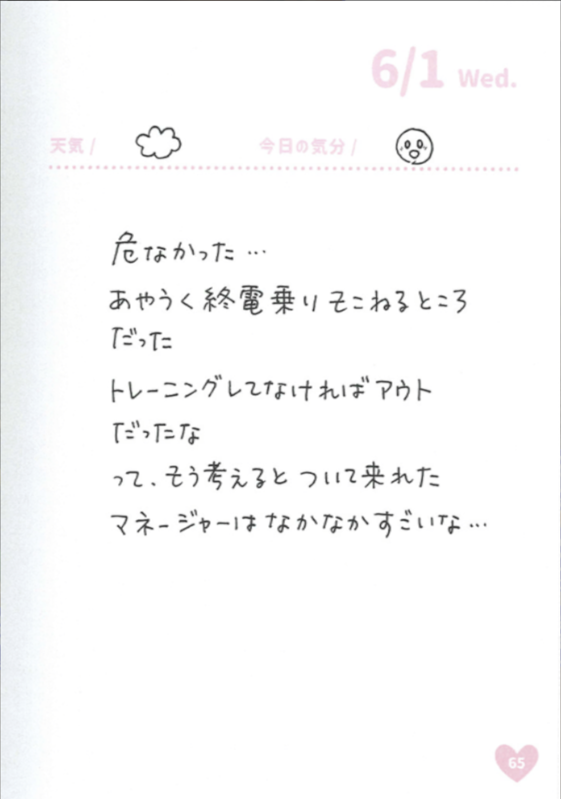 6/1 Wed.
天気 / 今日の気分 /
危なかった…
あやうく終電乗りそこねるところ
だった
トレーニングしてなければアウト
だったな
って、そう考えるとついて来れた
マネージャーはなかなかすごいな…
65